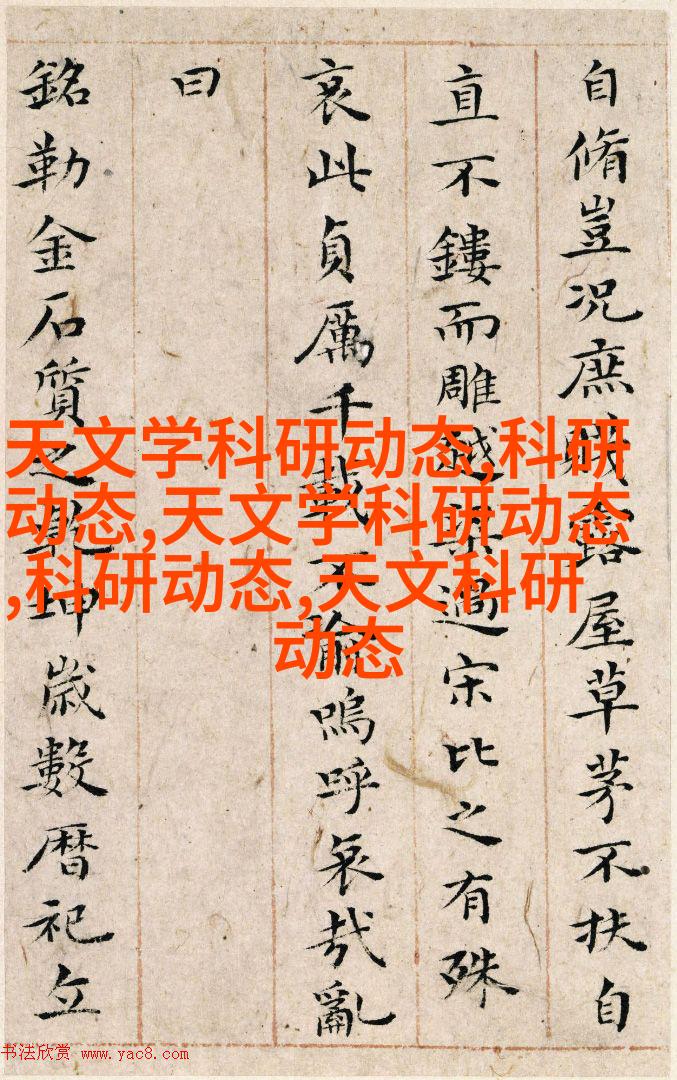 自脩豈况庶賤露屋草茅不扶自
直不鏤而雕越過宋比之有殊
哀此貞厲千載不嗚呼哀哉亂
曰
銘勒金石質之乾坤歲數曆祀立
天文学科研动态,科研
动态,天文学科研动态
,科研动态,天文科研
动态
书法欣赏 www.yac8.com